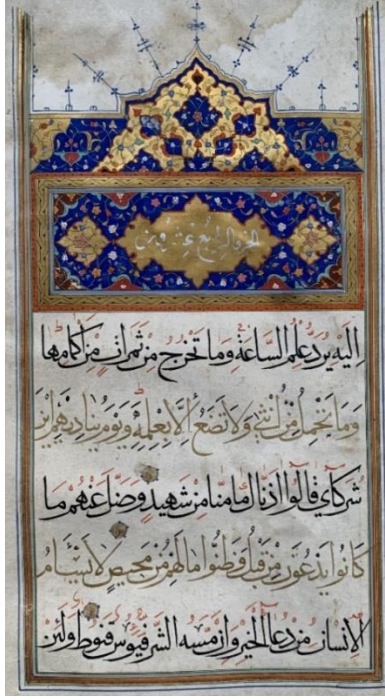 الجزو الرابع
اِلَيْهِ يُرَدُّ عِلْمُ السَّاعَةِ وَمَا تَخْرُجُ مِنْ ثَمَرَاتٍ مِنْ اَكْمَامِهَا
وَمَا تَحْمِلُ مِنْ اُنْثٰى وَلَا تَضَعُ اِلَّا بِعِلْمِهٖ وَيَوْمَ يُنَادِيهِمْ اَيْنَ
شُرَكَآئِي قَالُوا اٰذَنَّاكَ مَا مِنَّا مِنْ شَهِيدٍ وَضَلَّ عَنْهُمْ مَا
كَانُوا يَدْعُونَ مِنْ قَبْلُ وَظَنُّوا مَا لَهُمْ مِنْ مَحِيصٍ لَا يَسْئَمُ
الْاِنْسَانُ مِنْ دُعَآءِ الْخَيْرِ وَاِنْ مَسَّهُ الشَّرُّ فَيَؤُسٌ قَنُوطٌ وَلَئِنْ